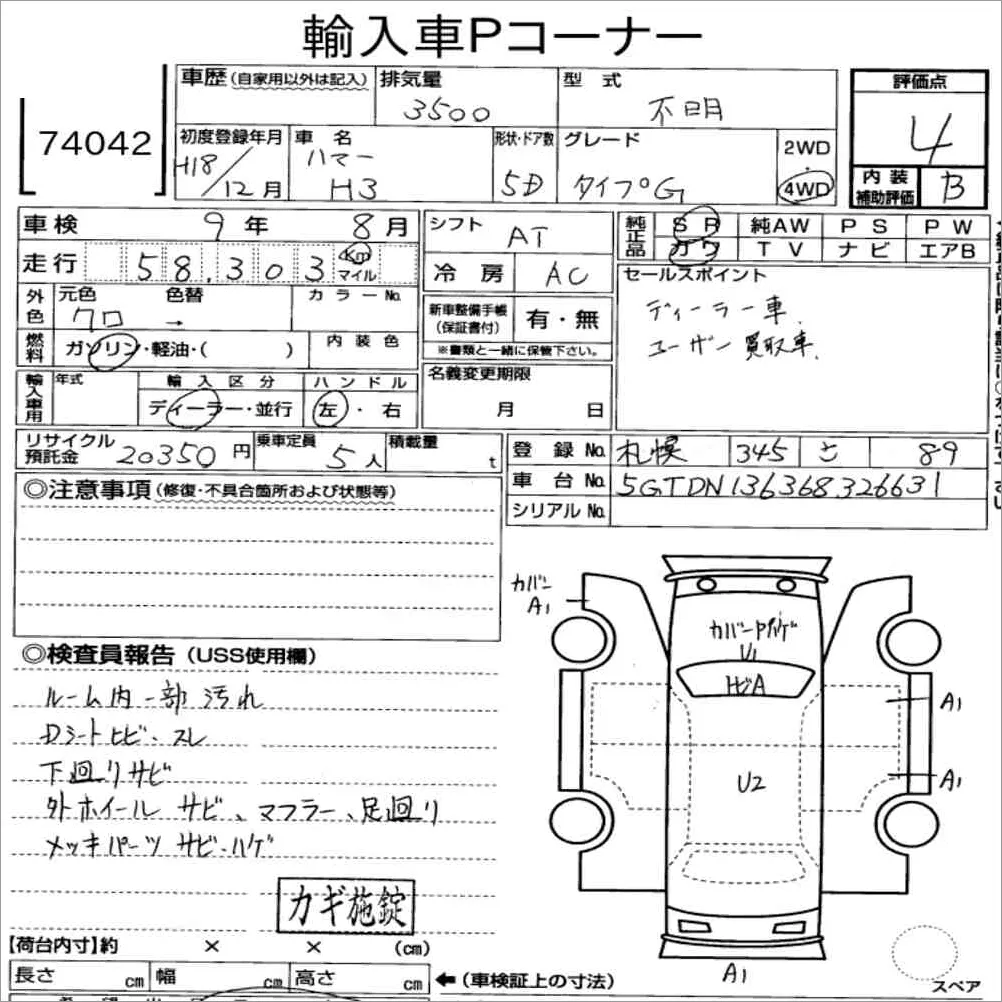 輸入車Pコーナー
74042
車歴(自家用以外は記入) 排気量 3500 型式 不明
評価点 4
初度登録年月 H18/12月 車名 ハマー H3 形状・ドア数 5D グレード タイプG 2WD・4WD
内装補助評価 B
車検 9年 8月
走行 58,303 Km マイル
シフト AT
冷房 AC
純正品 SR 純AW PS PW
カワ TV ナビ エアB
外色 元色 クロ 色替 → カラーNo.
燃料 ガソリン・軽油・( ) 内装色
新車整備手帳(保証書付) 有・無
※書類と一緒に保管下さい。
セールスポイント
ディーラー車.
ユーザー買取車.
輸入車用 年式 輸入区分 ディーラー・並行 ハンドル 左・右
名義変更期限 月 日
リサイクル預託金 20350円 乗車定員 5人 積載量 t
登録No. 札幌 345 さ 89
車台No. 5GTDN136368326631
シリアルNo.
◎注意事項(修復・不具合箇所および状態等)
◎検査員報告(USS使用欄)
ルーム内一部汚れ
Dシートヒビ・スレ
下廻りサビ
外ホイール サビ、マフラー、足廻り
メッキパーツ サビ・ハゲ
カギ施錠
カバー A1
カバーPハゲ
U1
トビA
A1
U2
A1
A1
スペア
【荷台内寸】約 × × (cm)
長さ cm 幅 cm 高さ cm ←(車検証上の寸法)